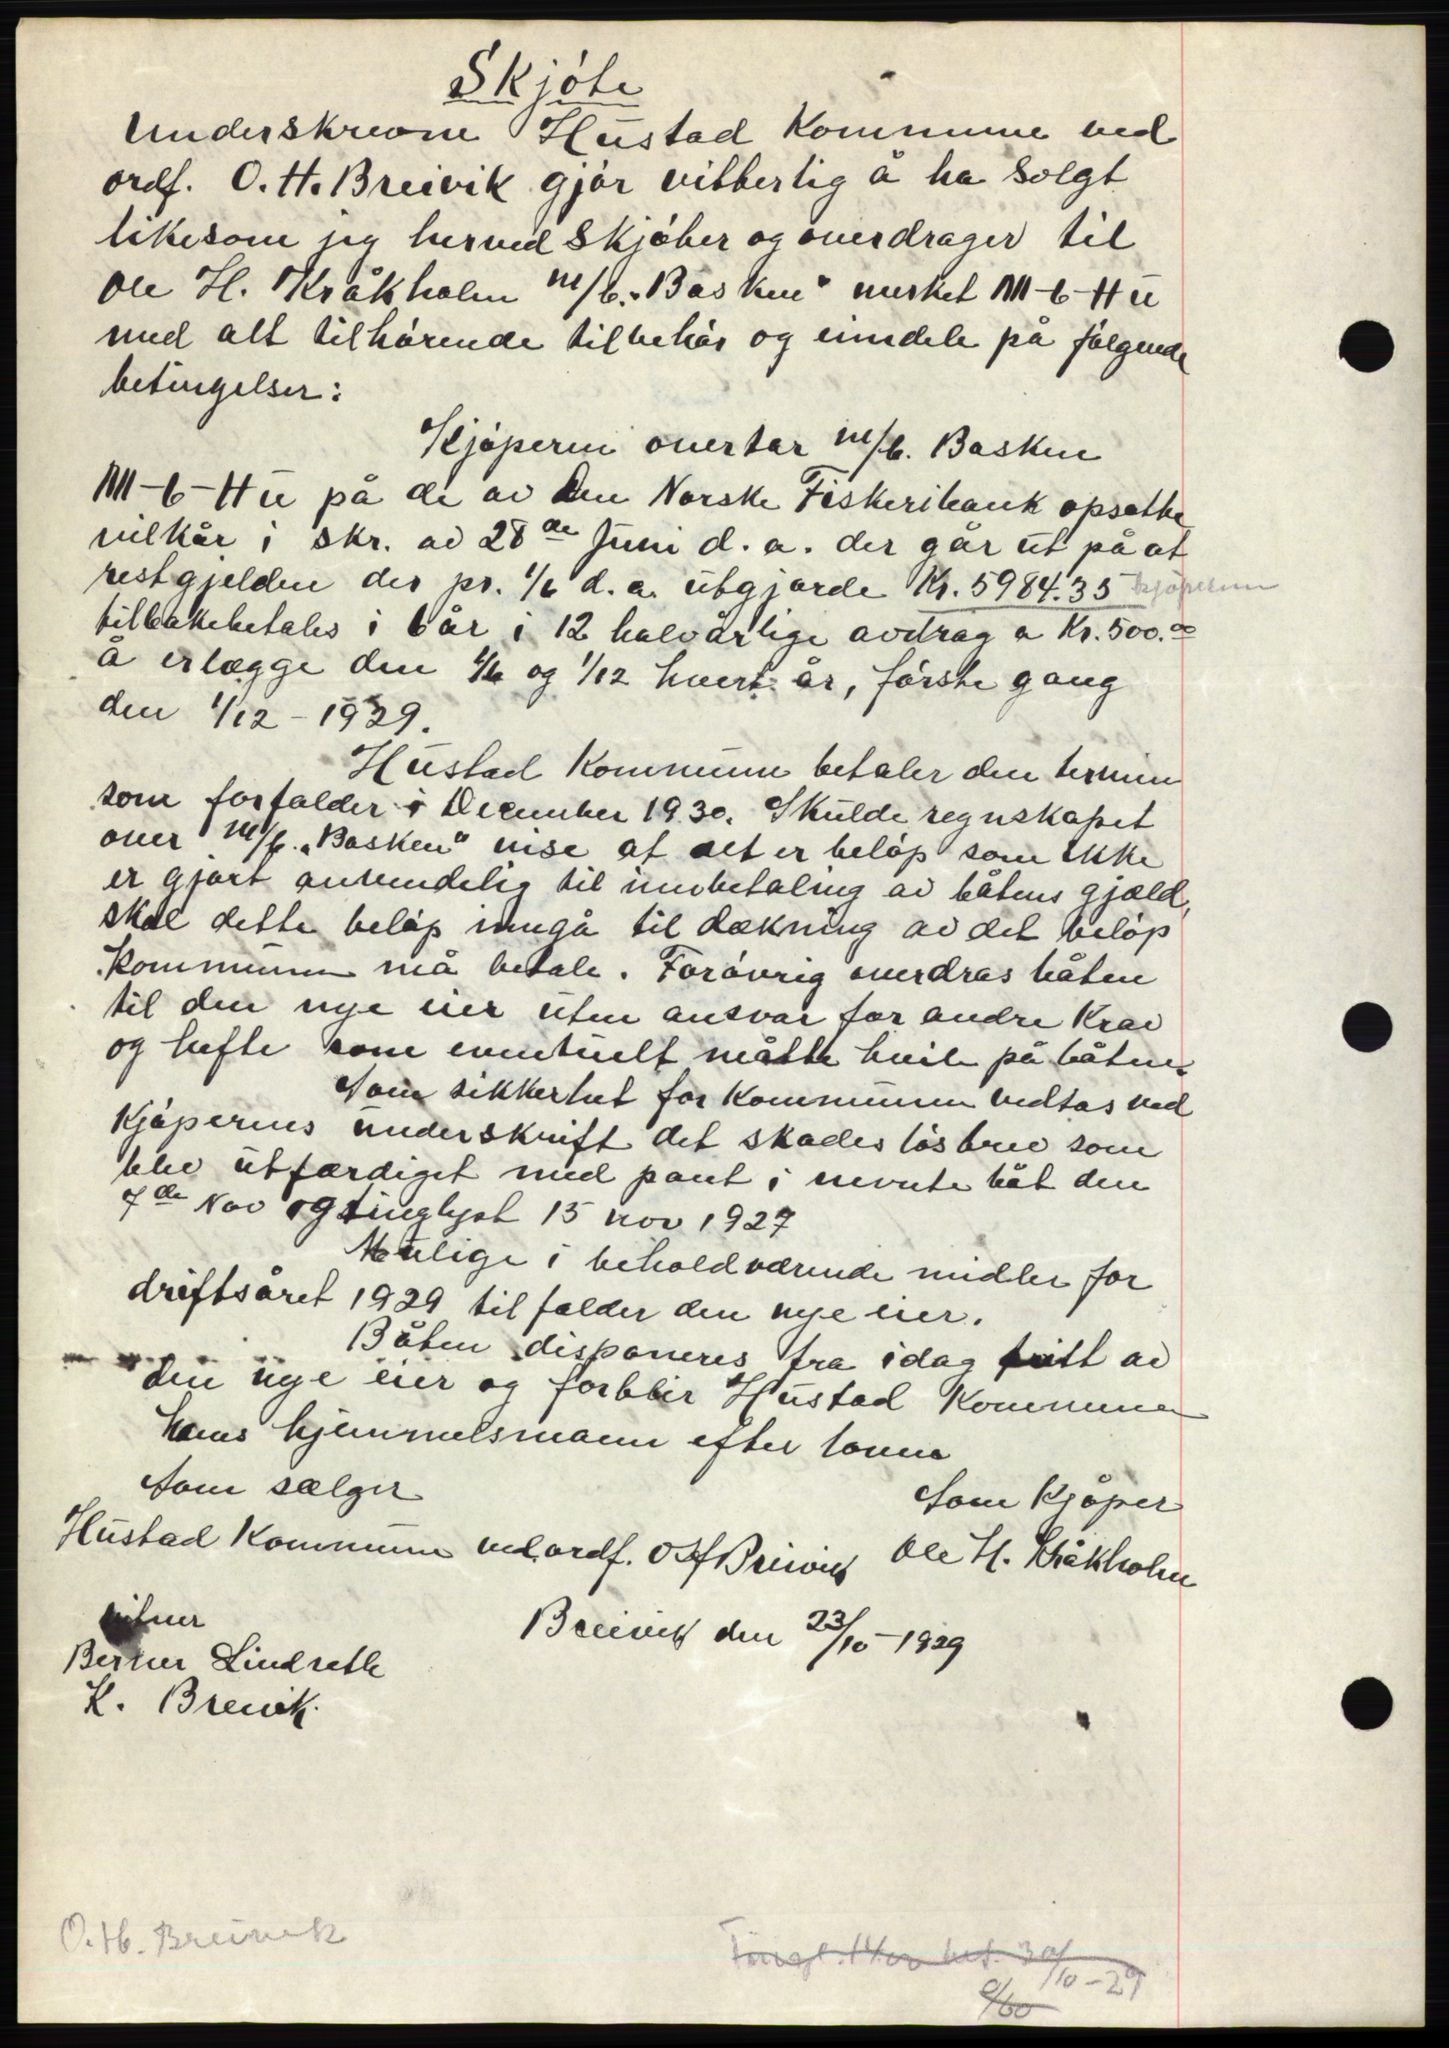 Skjöte
Underskrevne Hustad Kommune ved
ordf. O. H. Breivik gjör vitterlig å ha solgt
likesom jeg herved skjöter og overdrager til
Ole H. Kråkholm m/b. "Basken" merket M-6-Hu
med alt tilhörende tilbehör og eiendele på fölgende
betingelser:
Kjöperen overtar m/b. Basken
M-6-Hu på de av Den Norske Fiskeribank opsatte
vilkår i skr. av 28de Juni d. a. der går ut på at
restgjelden der pr. 1/6 d. a. utgjorde Kr. 5984.35 kjöperen
tilbakebetales i 6 år i 12 halvårlige avdrag a Kr. 500.00
å erlægge den 1/6 og 1/12 hvert år, förste gang
den 1/12 - 1929.
Hustad Kommune betaler den termin
som forfalder i December 1930. Skulde regnskapet
over m/b. "Basken" vise at det er belöp som ikke
er gjort anvendelig til innbetaling av båtens gjæld,
skal dette belöp inngå til dækning av det belöp
Kommunen må betale. Forövrig overdras båten
til den nye eier uten ansvar for andre Krav
og hefte som eventuelt måtte hvile på båten.
Som sikkerhet for Kommunen vedtas ved
Kjöperens underskrift det skadeslösbrev som
blev utfærdiget med pant i nevnte båt den
7de Nov og tinglyst 15 nov 1927
Mulige i behold værende midler for
driftsåret 1929 tilfalder den nye eier.
Båten disponeres fra idag fritt av
den nye eier og forblir Hustad Kommune
hans hjemmelsmann efter loven
Som sælger
Som Kjöper
Hustad Kommune ved ordf. O H Breivik Ole H. Kråkholm
vitner
Breivik den 23/10-1929
Berner Lindseth
K. Breivik.
O. H. Breivik
30/10-29